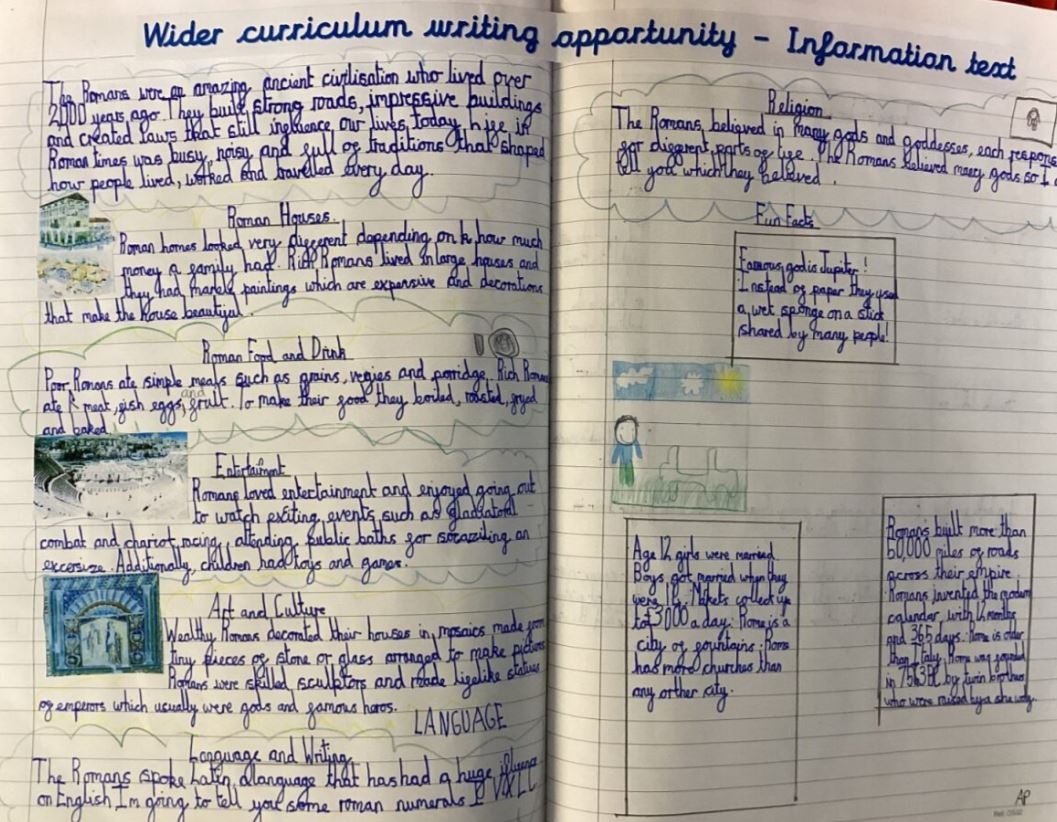 Wider curriculum writing opportunity – Information text
The Romans were an amazing ancient civilisation who lived over
2000 years ago. They built strong roads, impressive buildings
and created laws that still influence our lives today life in
Roman times was busy, noisy and full of traditions that shaped
how people lived, worked and travelled every day.
Roman Houses
Roman homes looked very different depending on how much
money a family had. Rich Romans lived in large houses and
they had paintings which are expensive and decorations
that make the house beautiful.
Roman Food and Drink
Poor Romans ate simple meals such as grains, vegies and porridge. Rich Romans
ate meat, fish eggs, and fruit. To make their food they boiled, roasted, fryed
and baked.
Entertaiment
Romans loved entertainment and enjoyed going out
to watch exciting events such as gladiatorial
combat and chariot racing, attending public baths for socaziling an
excersize. Additionally, children had toys and games.
Art and Culture
Wealthy Romans decorated their houses in mosaics made from
tiny pieces of stone or glass arranged to make pictures
Romans were skilled sculptors and made lifelike statues
of emperors which usually were gods and famous heros.
LANGUAGE
Language and Writing
The Romans spoke Latin, a language that has had a huge
on English I'm going to tell you some roman numerals I V X L C
Religion
The Romans, believed in many gods and goddesses, each respons
for different parts of life. The Romans believed many gods so I
tell you which they believed.
Fun Facts
Famous god is Jupiter!
Instead of paper they used
a wet sponge on a stick
shared by many people!
Age 12 girls were married
Boys got married when they
were 16. collect up
to 3000 a day. Rome is a
city of fountains. Rome
has more churches than
any orther city.
Romans built more than
50,000 miles of roads
across their empire.
Romans invented the modern
calendar, with 12 months
and 365 days. Rome is older
than Italy. Rome was founded
in 753BC by twin brothers
who were raised by a she wolf.
AP